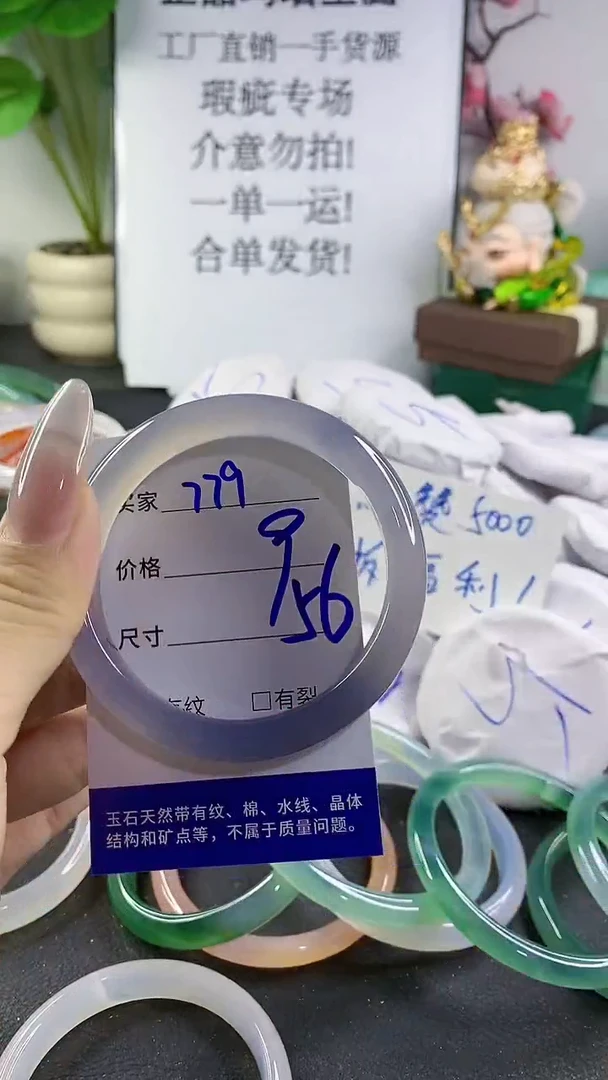 工厂直销一手货源
瑕疵专场
介意勿拍!
一单一运!
合单发货!
买家 779
价格 9
尺寸 56
有纹 □有裂
赞5000
福利!
玉石天然带有纹、棉、水线、晶体
结构和矿点等，不属于质量问题。